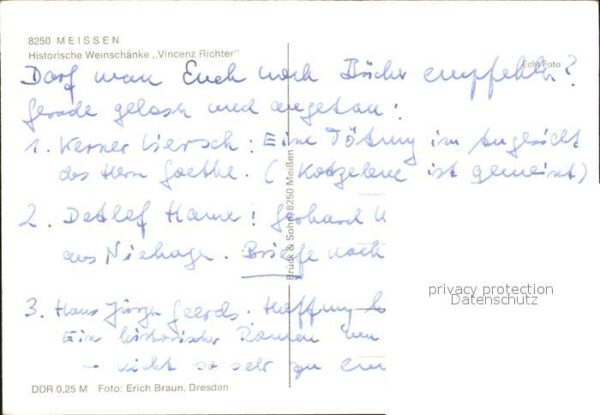 8250 MEISSEN
Historische Weinschänke „Vincenz Richter"
Echt Foto
Darf man Euch noch Bücher empfehlen?
Gerade gelesen und angetan:
1. Werner Liersch: Eine Tötung im Angesicht
des Herrn Goethe. (Kotzebue ist gemeint)
2. Detlef Gerhard
aus Briefe nach
3. Hans Jürgen Geerds. Hoffnung
Ein historischer Roman
– nicht so sehr zu em
Bruck & Sohn 8250 Meißen
privacy protection
Datenschutz
DDR 0,25 M Foto: Erich Braun, Dresden